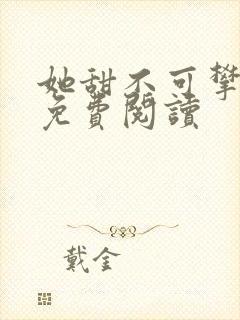 她甜不可攀
免費閱讀
戴金